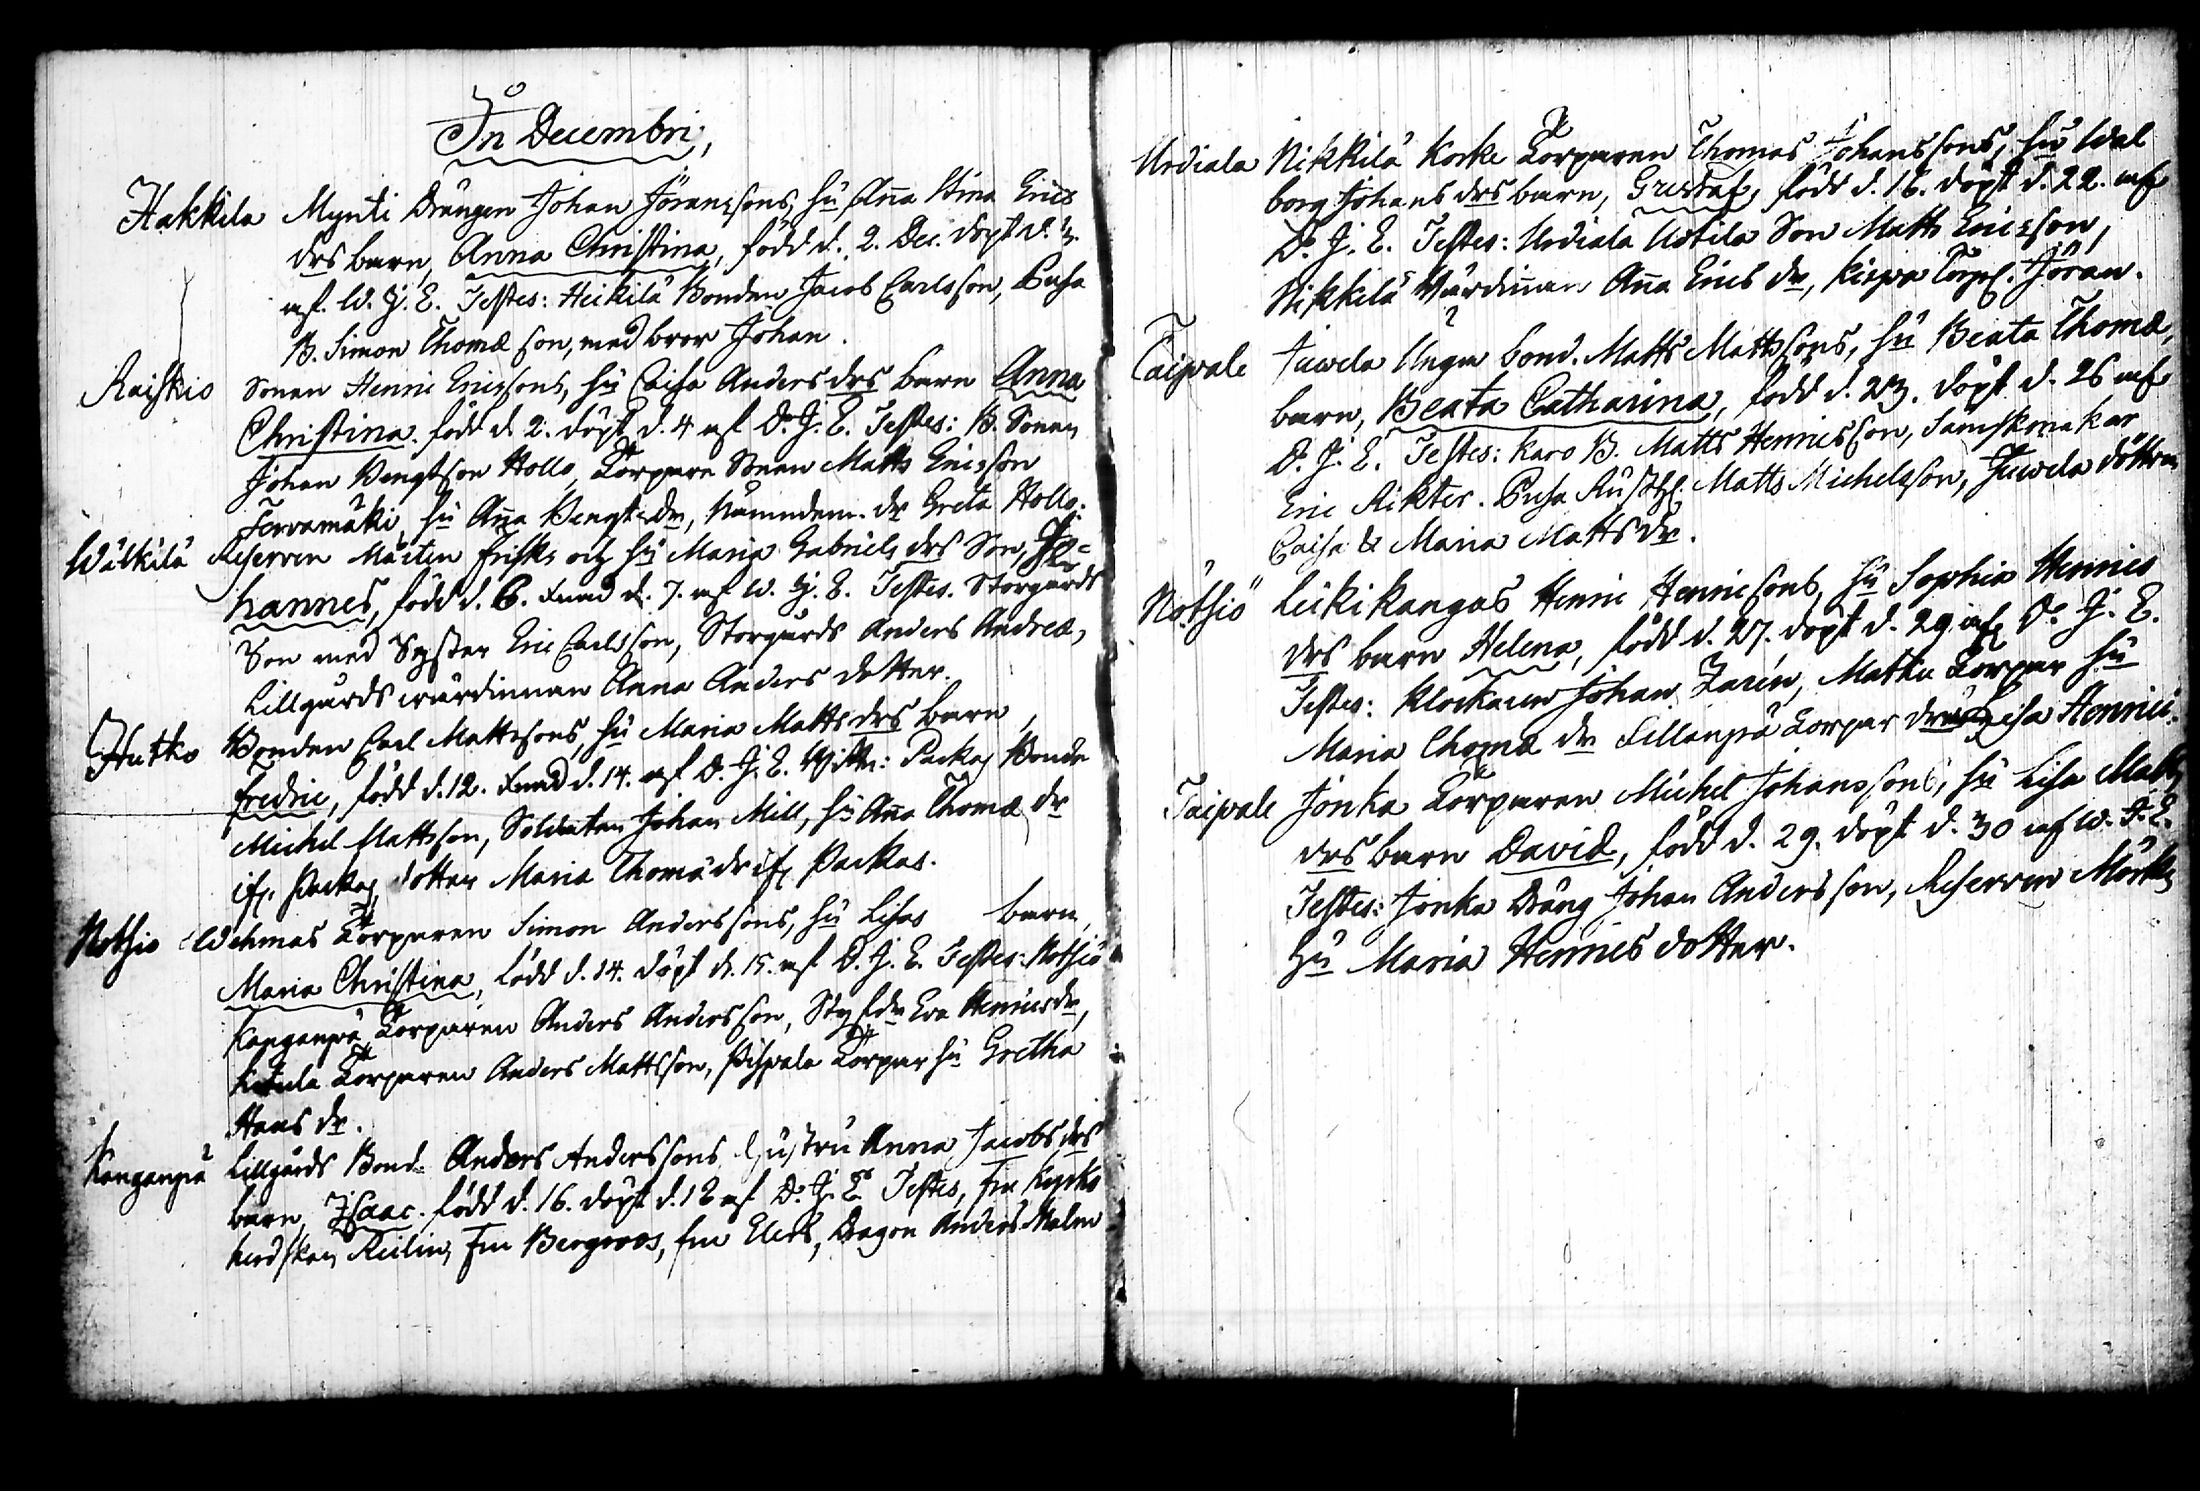 In Decembri,
Hakkila Mynti Drängen Johan Jöranssons, hu Aña Stina Erics
drs barn, Anna Christina, född d. 2. Dec. döpt d. 3.
af W. G. E. Testes: Heikilä Bonden Jacob Carlsson, Pusa
B. Simon Thomæ son, med bror Johan.
Raiskio Sonen Henric Ericssons, hu Caisa Anders drs barn Anna
Christina. född d. 2. döpt d. 4 af D. G. E. Testes: B. Sonen
Johan Bengtson Hollo, Torpare Sonen Matts Ericsson
Terwamäki, hu Aña Bengts dr, Nämndem. dr Greta Hollo.
Wälkilä Reserven Mårten Frisks och hu Maria Gabriels drs Son, Jo-
hannes, född d. 6. d. 7. af W. G. E. Testes. Storgårds
Son med Syster Eric Carlsson, Storgårds Anders Andreæ,
Lillgårds wärdinnan Anna Anders dotter.
Hutko Bonden Carl Mattssons, hu Maria Matts drs barn,
Fredric, född d. 12. d. 14. af D. G. E. Wittn: Packas Bonde
Michel Mattsson, Soldaten Johan Mill, hu Aña Thomæ dr
if. Packas dotter Maria Thomæ dr if. Packas.
Notsio Wehmas Torparen Simon Anderssons, hu Lisas barn,
Maria Christina, född d. 14. döpt d. 15. af D. G. E. Testes: Notsiö
Kanganpä Torparen Anders Andersson, Styfdr Eva Henricsdr,
Torparen Anders Mattsson, Pispala Torpar hu Gretha
Hans dr.
Kanganpä Lillgårds Bond. Anders Anderssons hustru Anna Jacobs drs
barn, Isaac. född d. 16. döpt d. 18 af D. G. E. Testes, fru Kyrko
herdskan Reilin, fru Bergroos, fru Elers, Dragon Anders Malm
Urdiala Nikkilä Korke Torparen Thomas Johanssons, hu Wal
borg Johans drs barn, Gustaf, född d. 16. döpt d. 22. af
D. G. E. Testes: Urdiala Uotila Son Matts Ericsson,
Nikkilä Wärdiñan Aña Erics dr, Kispa Jöran.
Taipale Juwela Unga bond. Matts Mattssons, hu Beata Thomæ,
barn, Beata Catharina, född d. 23. döpt d. 26 af
D. G. E. Testes: Karo B. Matts Henricsson, Sämskmakar
Eric Rikter. Pusa Rusth. Matts Michelsson, Juwela döttrar
Caisa & Maria Matts dr.
Notsiö Leikikangas Henric Henricsons, hu Sophia Henrics
drs barn Helena, född d. 27. döpt d. 29 af D. G. E.
Testes: Klockaren Johan Zarin, Matku Torpar hu
Maria Thomæ dr Sillanpä Torpar Lisa Henrici.
Taipale Jonka Torparen Michel Johanssons, hu Lisa Matts
drs barn David, född d. 29. döpt d. 30 af W. G. E.
Testes: Jonka Dräng Johan Andersson, Reserven Mörks
Hu Maria Henrics dotter.